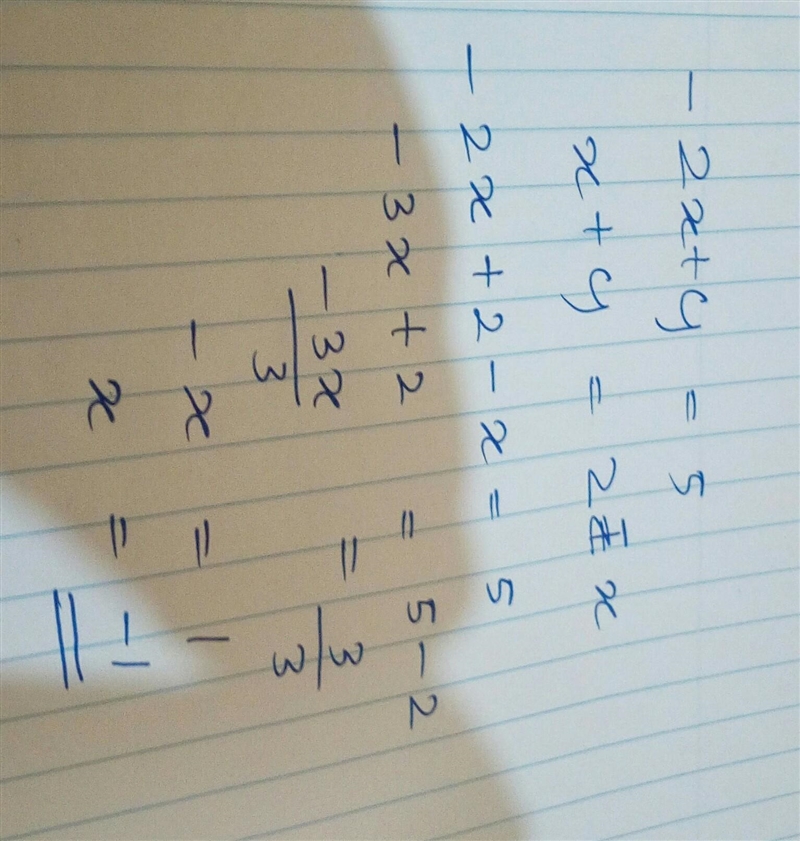 -2x+y = 5
x+y = 2-x
-2x+2-x = 5
-3x+2 = 5-2
-3x/3 = 3/3
-x = 1
x = -1